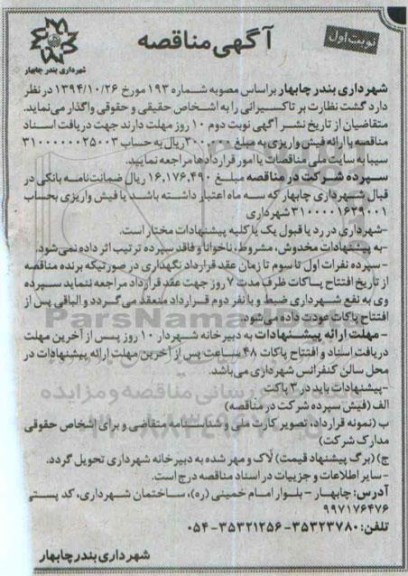 نوبت اول
آگهی مناقصه
شهرداری بندر چابهار
شهرداری بندر چابهار براساس مصوبه شماره ۱۹۳ مورخ ۱۳۹۴/۱۰/۲۶ در نظر
دارد گشت نظارت بر تاکسیرانی را به اشخاص حقیقی و حقوقی واگذار می‌نماید.
متقاضیان از تاریخ نشر آگهی نوبت دوم ۱۰ روز مهلت دارند جهت دریافت اسناد
مناقصه با ارائه فیش واریزی به مبلغ ۳۰۰,۰۰۰ ریال به حساب ۳۱۰۰۰۰۰۰۲۵۰۰۳
سیبا به سایت ملی مناقصات یا امور قراردادها مراجعه نمایید.
سپرده شرکت در مناقصه مبلغ ۱۶,۱۷۶,۴۹۰ ریال ضمانت‌نامه بانکی در
قبال شهرداری چابهار که سه ماه اعتبار داشته باشد یا فیش واریزی بحساب
۳۱۰۰۰۰۱۶۳۹۰۰۱ شهرداری
-شهرداری در رد یا قبول یک یا کلیه پیشنهادات مختار است.
-به پیشنهادات مخدوش، مشروط، ناخوانا و فاقد سپرده ترتیب اثر داده نمی‌شود.
-سپرده نفرات اول تا سوم تا زمان عقد قرارداد نگهداری در صورتیکه برنده مناقصه
از تاریخ افتتاح پاکات ظرف مدت ۷ روز جهت عقد قرارداد مراجعه ننماید سپرده
وی به نفع شهرداری ضبط و با نفر دوم قرارداد منعقد می‌گردد و الباقی پس از
افتتاح پاکات عودت داده می‌شود.
-مهلت ارائه پیشنهادات به دبیرخانه شهردار ۱۰ روز پس از آخرین مهلت
دریافت اسناد و افتتاح پاکات ۴۸ ساعت پس از آخرین مهلت ارائه پیشنهادات در
محل سالن کنفرانس شهرداری می‌باشد.
-پیشنهادات باید در ۳ پاکت
الف (فیش سپرده شرکت در مناقصه)
ب (نمونه قرارداد، تصویر کارت ملی و شناسنامه متقاضی و برای اشخاص حقوقی
مدارک شرکت)
ج) (برگ پیشنهاد قیمت) لاک و مهر شده به دبیرخانه شهرداری تحویل گردد.
-سایر اطلاعات و جزییات در اسناد مناقصه درج است.
آدرس: چابهار - بلوار امام خمینی (ره)، ساختمان شهرداری، کد پستی
۹۹۷۱۷۶۴۷۶
تلفن: ۳۵۳۲۳۷۸۰-۳۵۳۲۱۲۵۶-۰۵۴
شهرداری بندر چابهار